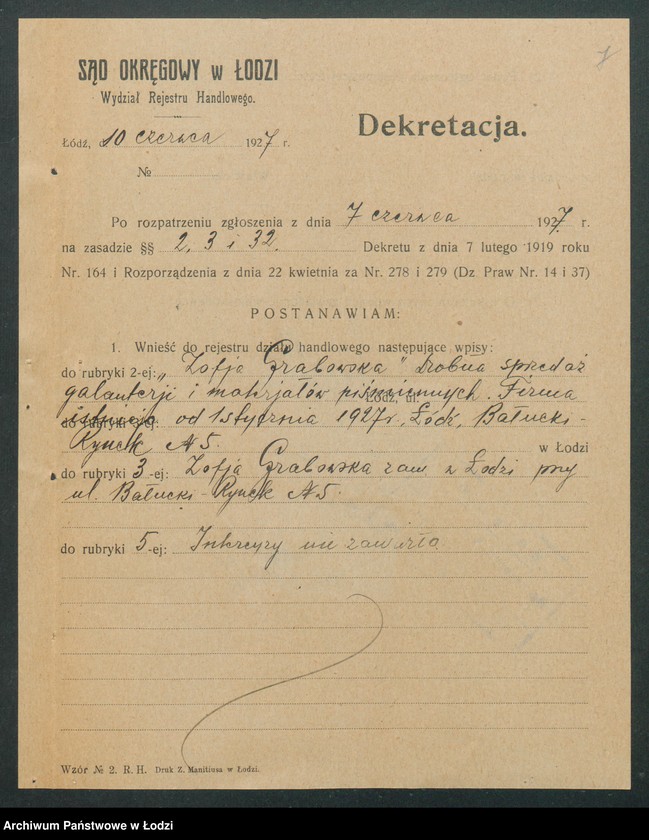 1
SĄD OKRĘGOWY w ŁODZI
Wydział Rejestru Handlowego.
Łódź, d 10 czerwca 1927 r.
Dekretacja.
№
Po rozpatrzeniu zgłoszenia z dnia 7 czerwca 1927 r.
na zasadzie §§ 2, 3 i 32. Dekretu z dnia 7 lutego 1919 roku
Nr. 164 i Rozporządzenia z dnia 22 kwietnia za Nr. 278 i 279 (Dz Praw Nr. 14 i 37)
POSTANAWIAM:
1. Wnieść do rejestru działu handlowego następujące wpisy:
do rubryki 2-ej: „Zofja Grabowska” drobna sprzedaż
galanterji i materjałów piśmiennych. Firma
Łódź, ul.
istnieje od 1 stycznia 1927 r., Łódź, Bałucki-
do rubryki
Rynek № 5. w Łodzi
do rubryki 3-ej: Zofja Grabowska zam w Łodzi przy
ul. Bałucki-Rynek № 5.
do rubryki 5-ej: Intercyzy nie zawarła
Wzór № 2. R. H. Druk Z. Manitiusa w Łodzi.
Archiwum Państwowe w Łodzi